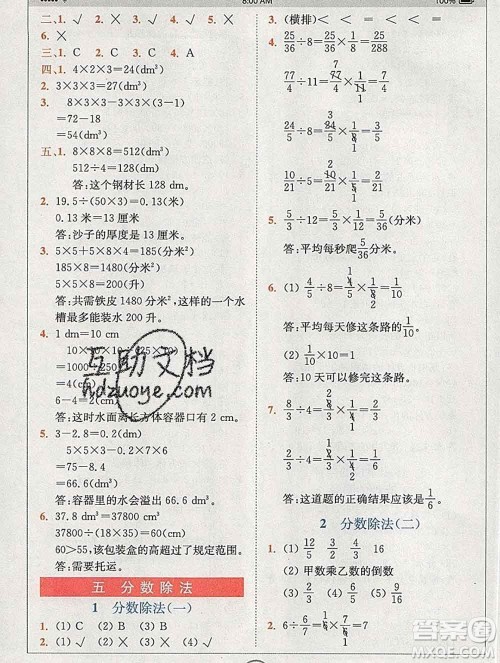 8:00 AM 100%
二、1. √ 2. × 3. √ 4. × 5. ×
6. ×
三、1. C 2. C 3. C 4. A
四、1. 4×2×3=24(dm³)
2. 3×3×3=27(dm³)
3. 8×3×3-3×3×(3-1)
=72-18
=54(dm³)
五、1. 8×8×8=512(dm³)
512÷4=128(dm)
答:这个钢材长 128 dm。
2. 19.5÷(50×3)=0.13(米)
0.13 米=13 厘米
答:沙子的厚度是 13 厘米。
3. 5×5+5×8×4=185(分米²)
185×8=1480(分米²)
5×5×8=200(升)
答:共需铁皮 1480 分米²,装这样的一个水
槽最多能装水 200 升。
4. 1 dm=10 cm
6-4=2(cm)
答:这时水面离长方体容器口有 2 cm。
5. 3-2.8=0.2(dm)
5×5×3-3×3×0.2
=75-8.4
=66.6(dm³)
答:容器里的水会溢出 66.6 dm³。
6. 37.8 dm³=37800 cm³
37800÷(18×35)=60(cm)
60>55,该包装盒的高超过了规定范围。
答:需要托运。
五 分数除法
1 分数除法(一)
1. (1)C (2)B (3)C (4)A
2. (1)√ (2)× (3)× (4)√
3. (横排) < < < = < <
4. 25/36÷8=25/36×1/8=25/288
77/4÷11=77/4×1/11=7/4
24/5÷8=24/5×1/8=3/5
10/21÷5=10/21×1/5=2/21
5. 5/3÷12=5/3×1/12=5/36(分米)
答:平均每秒爬5/36分米。
6. (1) 4/5÷8=4/5×1/8=1/10
答:平均每天修这条路的1/10。
(2) 1÷1/10=10(天)
答:10 天可以修完这条路。
7. 8/3÷4=8/3×1/4=2/3
2/3÷4=2/3×1/4=1/6
答:这道题的正确结果应该是1/6。
2 分数除法(二)
1. (1) 3/4 3/2 9/8 9/16
(2)甲数乘乙数的倒数
(3)> < > <
2. 6÷1/2=6×2=12
互助文档
hdzuoye.com
作业帮答案
MXQE.COM